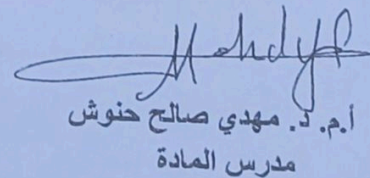 Mehdy
أ.م. د. مهدي صالح حنوش
مدرس المادة